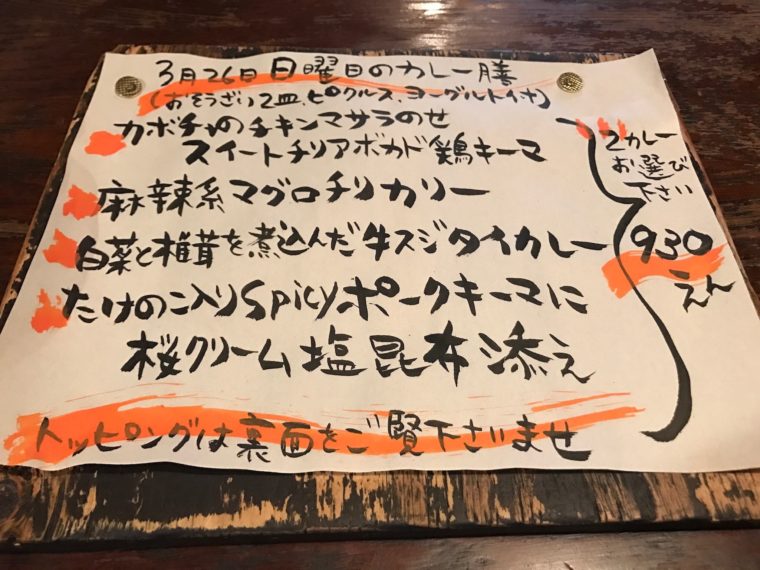 3月26日日曜日のカレー膳
(おそうざい2皿、ピクルス、ヨーグルト付)
カボチャのチキンマサラのせ
スイートチリアボカド鶏キーマ
麻辣系マグロチリカリー
白菜と椎茸を煮込んだ牛スジタイカレー
たけのこ入りSpicyポークキーマに
桜クリーム塩昆布添え
2カレー
お選び
下さい
930
えん
トッピングは裏面をご覧下さいませ